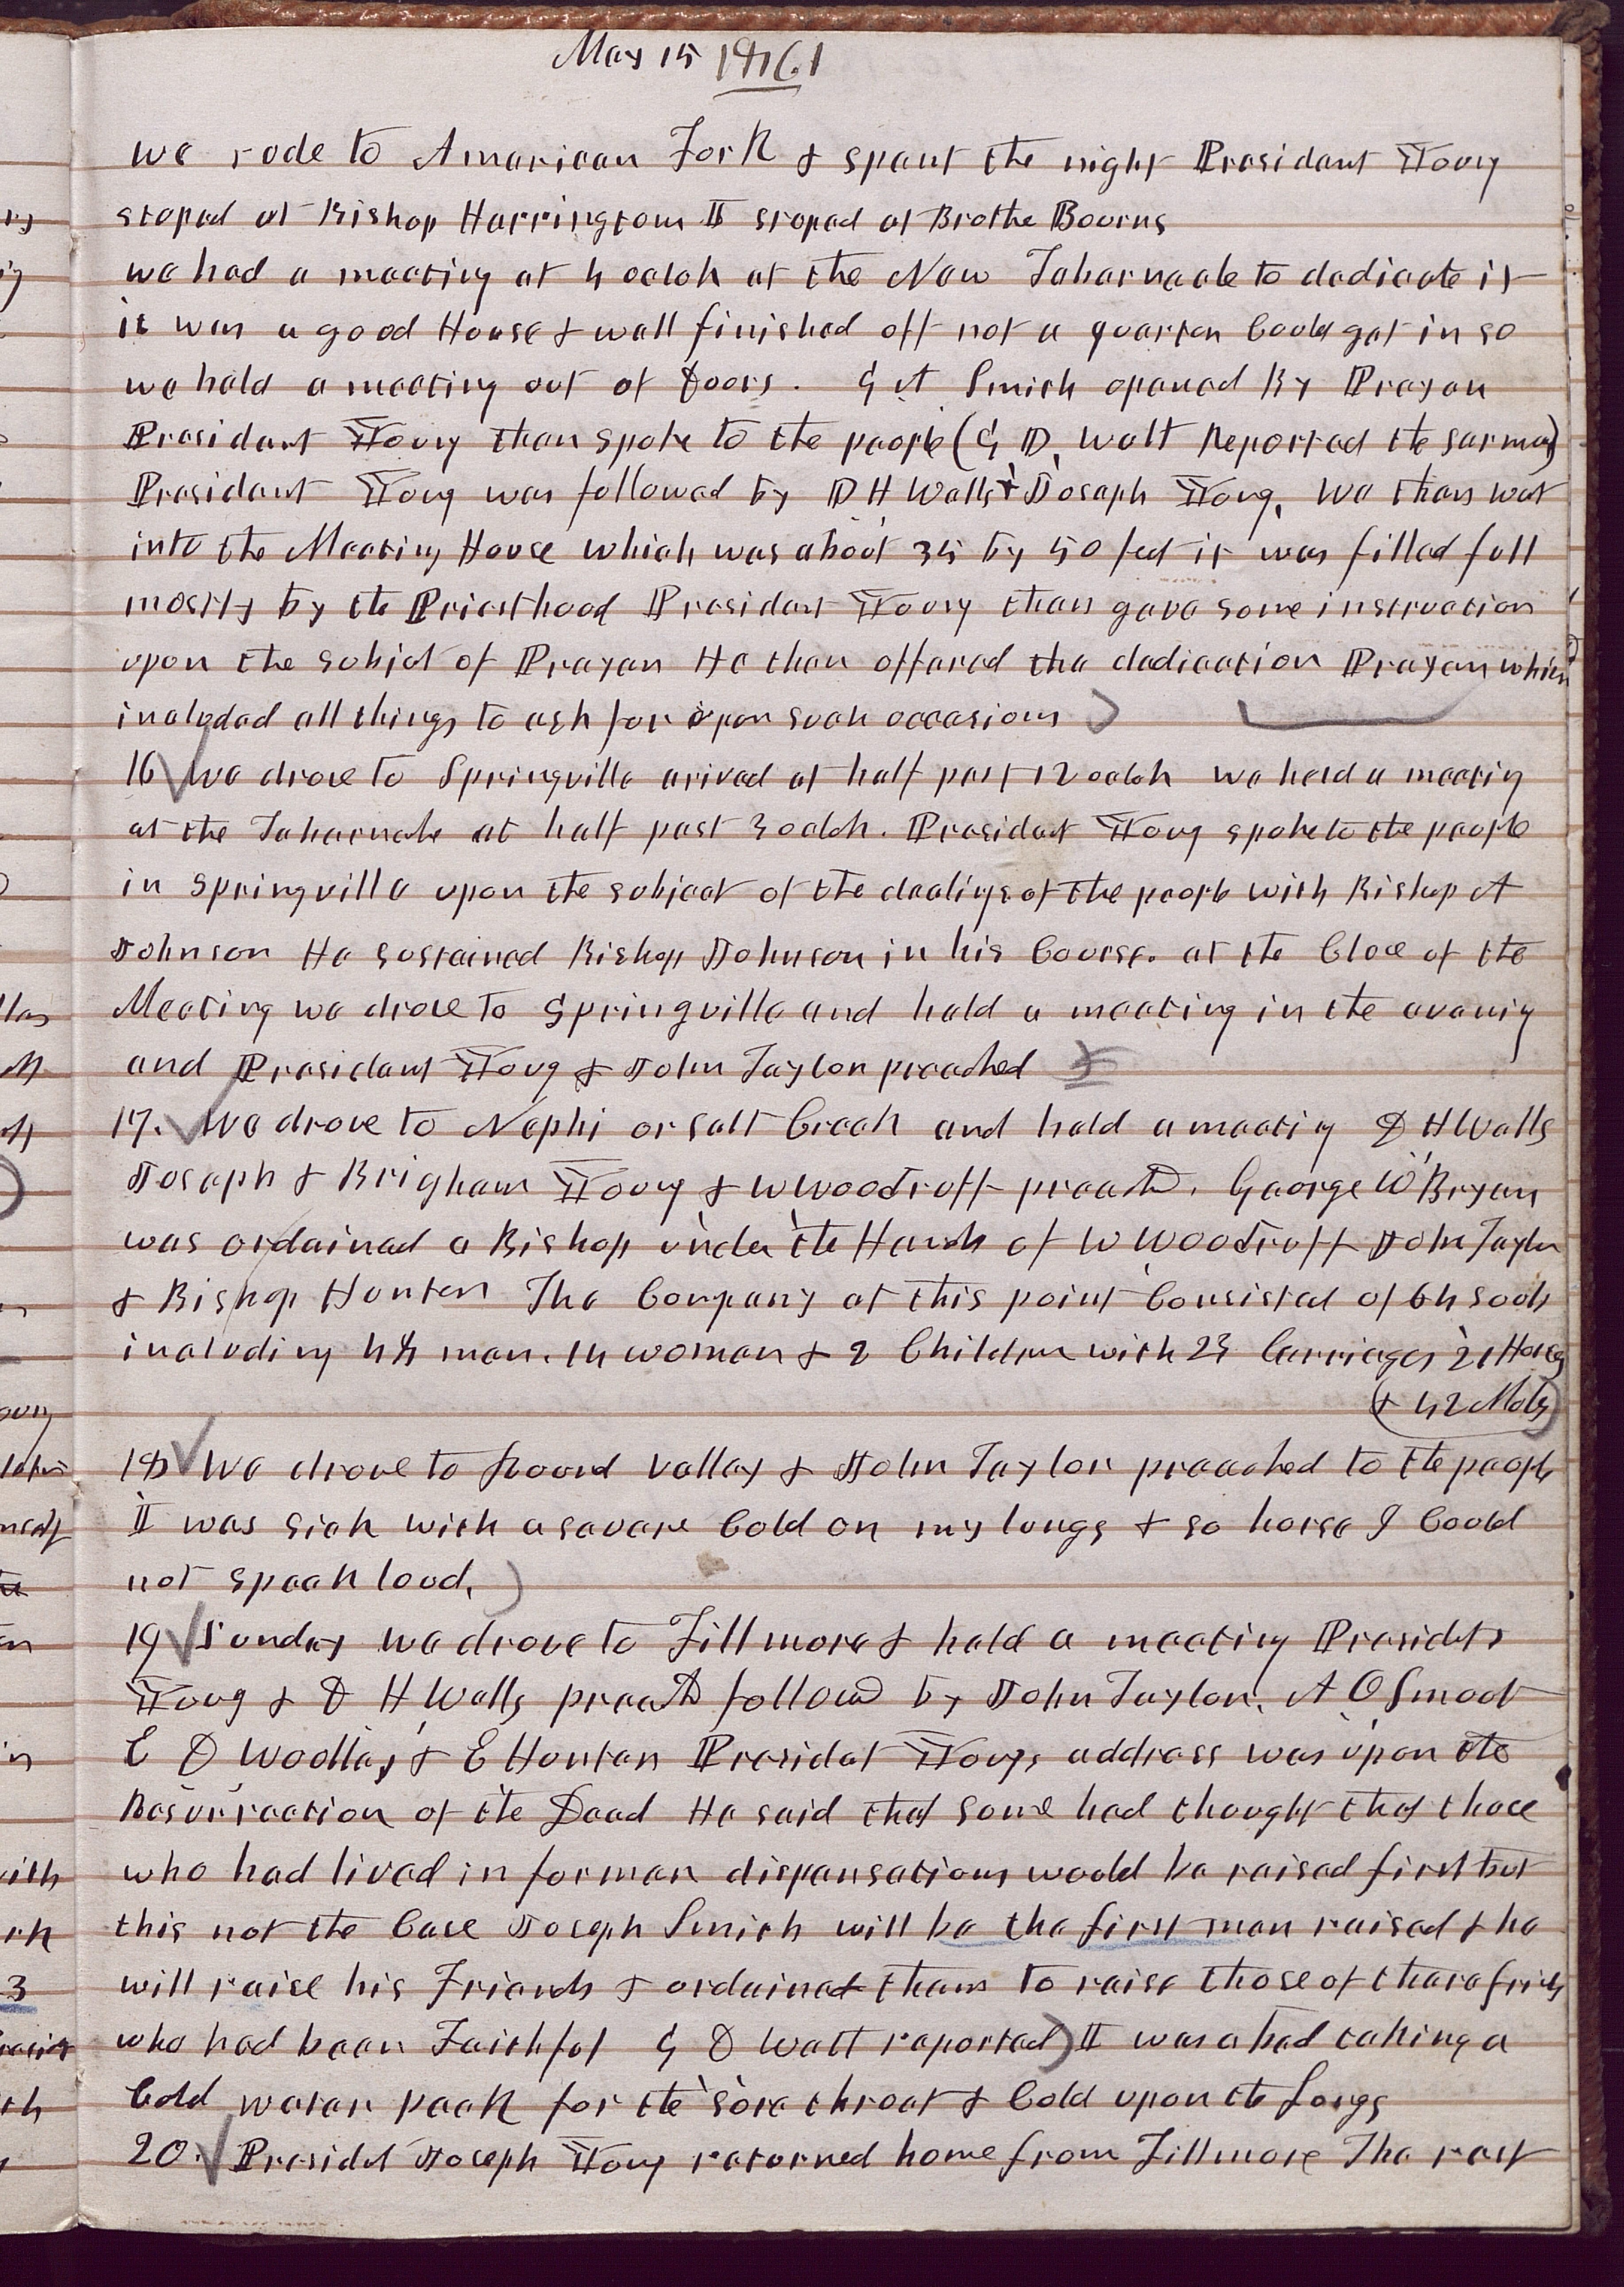 May 15 1861
we rode to American Fork & spent the night President Young
stoped at Bishop Harringtons I stoped at Brothe Bourns
we had a meeting at 4 oclok at the New Tabernacle to dedicate it
it was a good House & well finished off not a quarter Could get in so
we held a meeting out of Doors. G A Smith opened By Prayer
President Young then spoke to the people (G D. Watt Reported the sermon)
President Young was followed by D H Wells & Joseph Young. We then went
into the Meeting House which was about 35 by 50 feet it was filled full
mostly by the Priesthood President Young then gave some instruction
upon the subjet of Prayer He then offered the dedication Prayer which
included all things to ask for upon such occasions
16 we drove to Springville arived at half past 12 oclok we held a meeting
at the Tabernacle at half past 3 oclok. President Young spoke to the people
in Springville upon the subject of the dealings of the people with Bishop A
Johnson He sustained Bishop Johnson in his Course. at the Close of the
Meeting we drove to Springville and held a meeting in the evenig
and President Young & John Taylor preached
17. We drove to Nephi or salt Creek and held a meetig D H Wells
Joseph & Brigham Young & W Woodruff preachd. George W Bryan
was ordained a Bishop under the Hands of W Woodruff John Taylor
& Bishop Hunter The Company at this point Consisted of 64 souls
including 48 men. 14 women & 2 Children with 23 Carriages 21 Horses
& 42 Mules
18 We drove to Round valley & John Taylor preached to the people
I was sick with a severe Cold on my lungs & so horse I Could
not speak loud.
19 Sunday we drove to Fillmore & held a meeting Presidets
Young & D H Wells preachd followd by John Taylor. A O Smoot
E D Woolley & E Hunter Presidet Youngs address was upon the
Resurrection of the Dead He said that some had thought that those
who had lived in former dispensations would be raised first but
this not the Case Joseph Smith will be the first man raised & he
will raise his Friends & ordained them to raise those of there friends
who had been Faithful G D Watt reported) I was abed taking a
Cold water pack for the sore throat & Cold upon the Lungs
20. Presidet Joseph Young returned home from Fillmore The rest